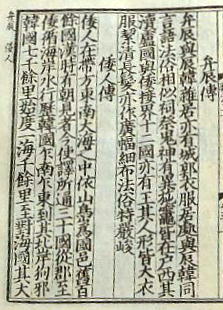 弁辰傳
弁辰與辰韓雜居亦有城郭衣服居處與辰韓同
言語法俗相似祠祭鬼神有異施竈皆在戶西其
瀆盧國與倭接界十二國亦有王其人形皆大衣
服絜清長髮亦作廣幅細布法俗特嚴峻
倭人傳
倭人在帶方東南大海之中依山㠀為國邑舊百
餘國漢時有朝見者今使譯所通三十國從郡至
倭循海岸水行歷韓國乍南乍東到其北岸狗邪
韓國七千餘里始度一海千餘里至對海國其大
弁辰 倭人